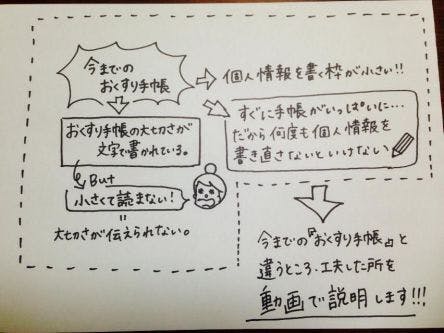 今までの
おくすり手帳
個人情報を書く枠が小さい!!
すぐに手帳がいっぱいに…
だから何度も個人情報を
書き直さないといけない
おくすり手帳の大切さが
文字で書かれている。
But
小さくて読まない!
大切さが伝えられない。
今までの『おくすり手帳』と
違うところ、工夫した所を
動画で説明します!!!